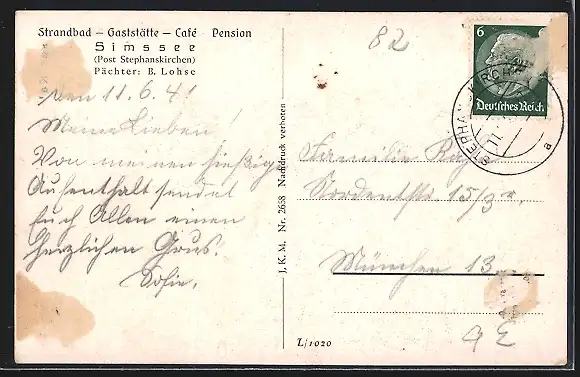 Strandbad – Gaststätte – Café Pension
Simssee
(Post Stephanskirchen)
Pächter: B. Lohse
den 11.6.41
Meine Lieben!
Von meinen hiesigen
Aufenthalt sendet
Euch Allen einen
herzlichen Grus.
Sofie.
J. K. M. Nr. 2658 Nachdruck verboten
82
6
Deutsches Reich
STEPHANSKIRCHEN
a
Familie
Nordendstr 15/3 r.
München 13
L/1020
a E